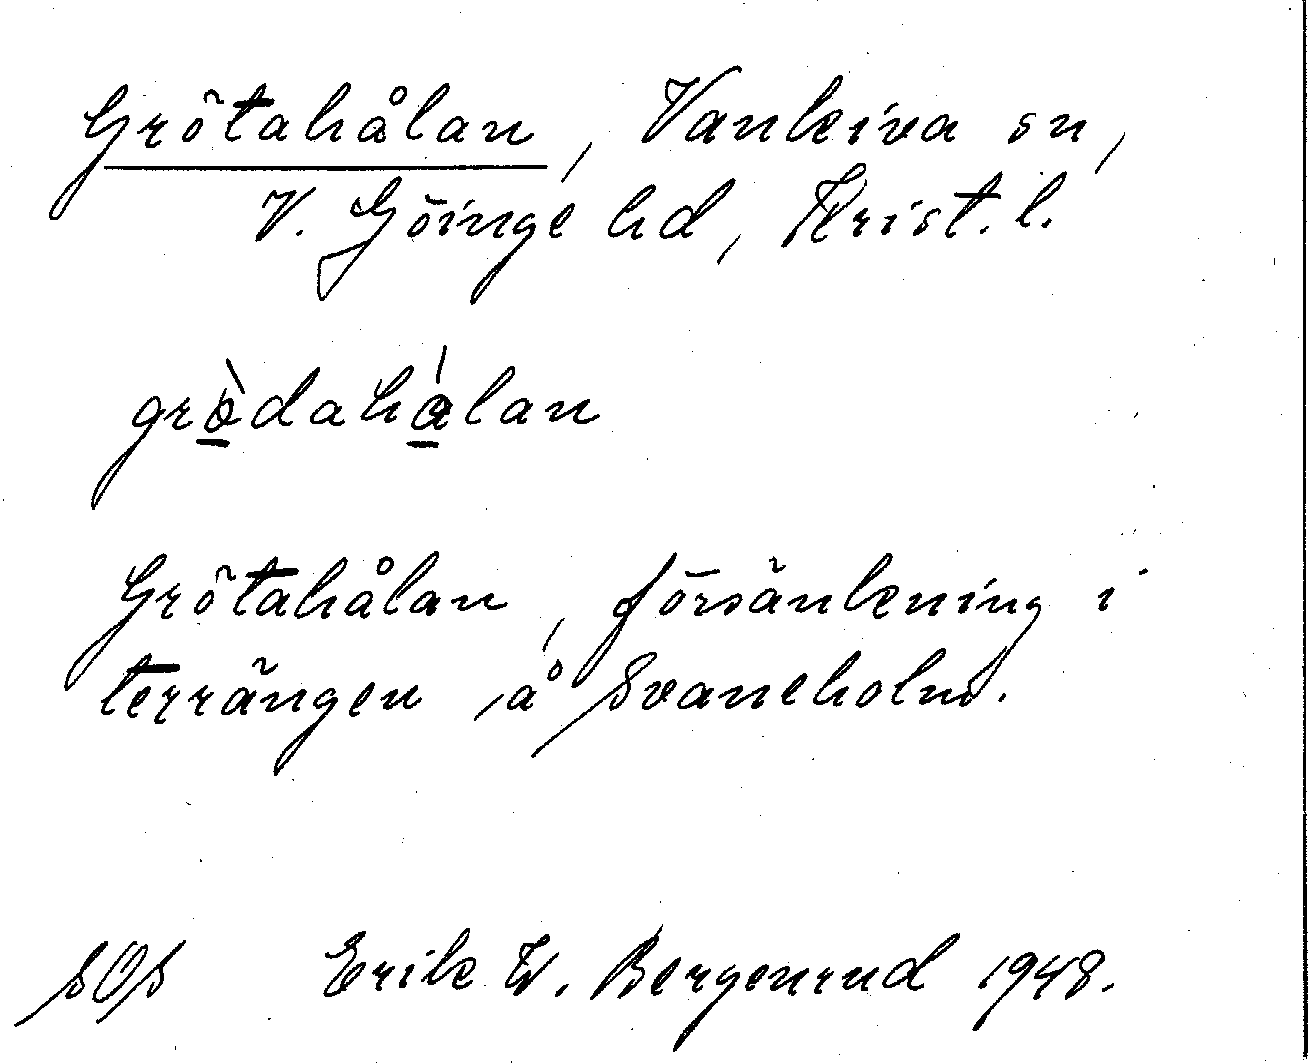 Grötahålan, Vankiva sn,
V. Göinge hd, Krist. l.
grö̀dahá̱lan
Grötahålan, försänkning i
terrängen å Svaneholm.
SOS Erik W. Bergenrud 1948.